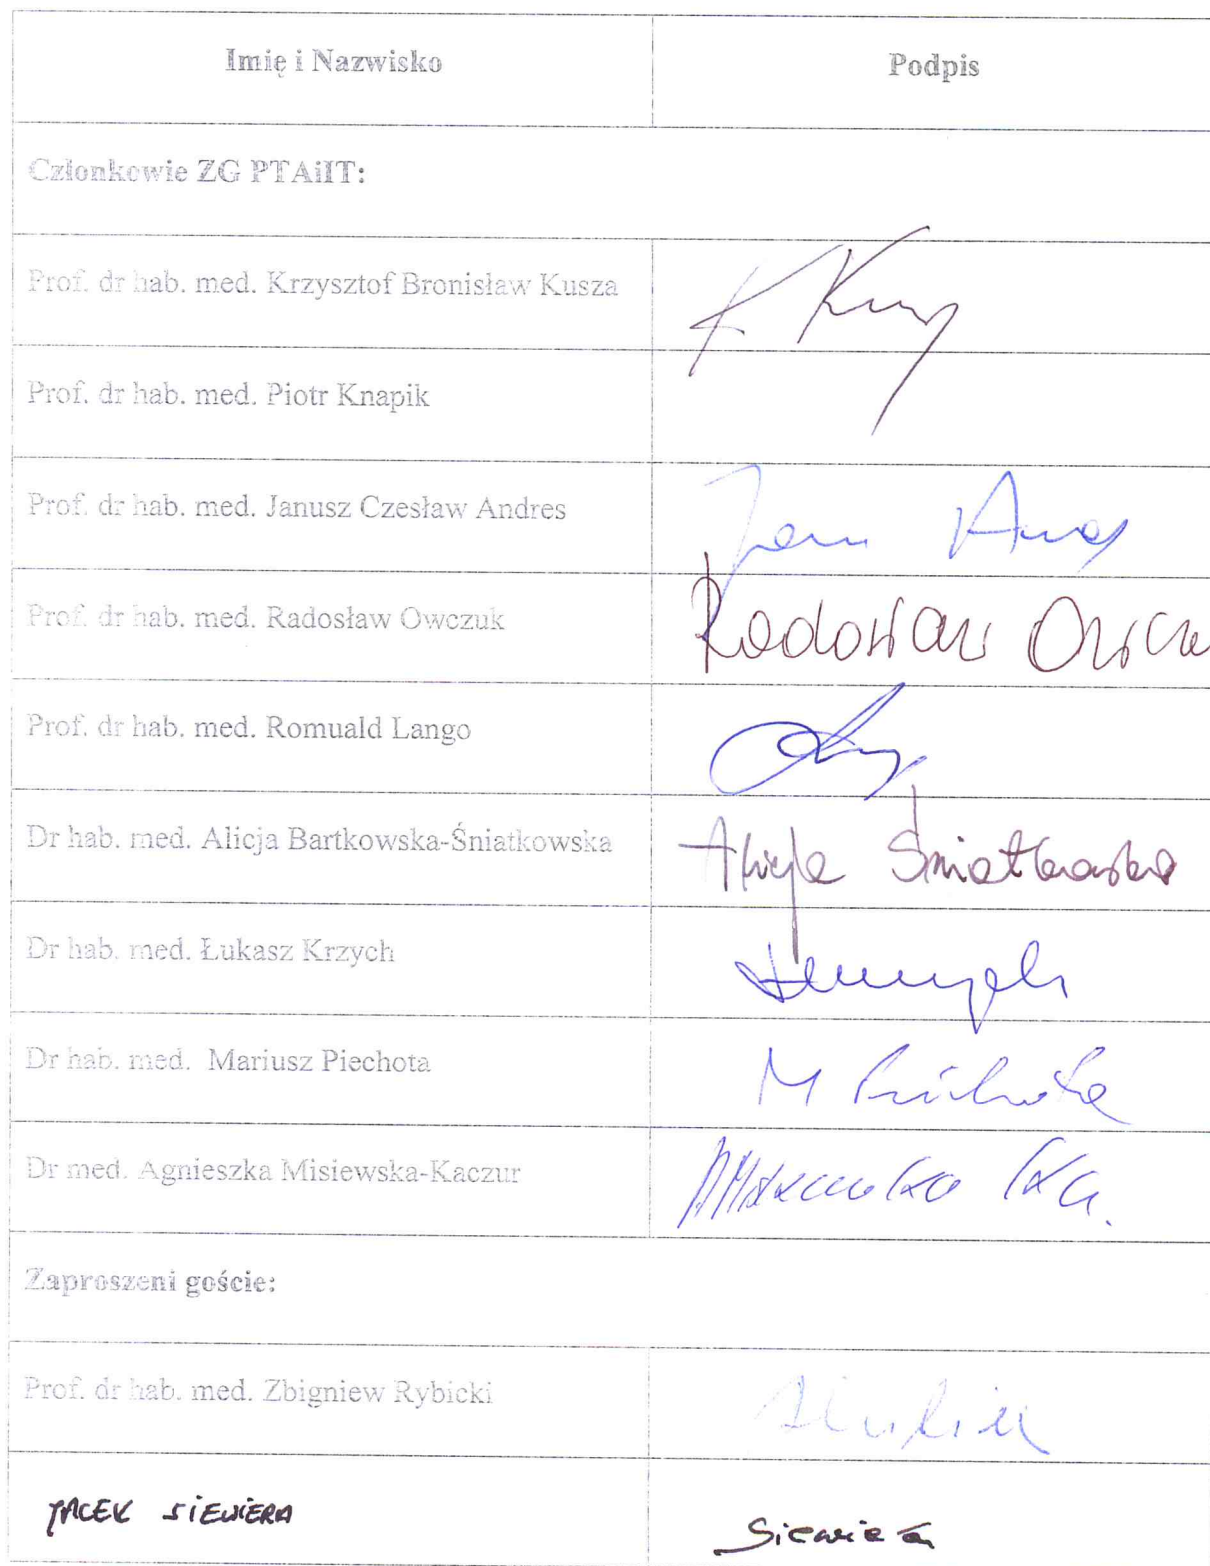 Imię i Nazwisko
Podpis
Członkowie ZG PTAiIT:
Prof. dr hab. med. Krzysztof Bronisław Kusza
Prof. dr hab. med. Piotr Knapik
Prof. dr hab. med. Janusz Czesław Andres
Prof. dr hab. med. Radosław Owczuk
Radosław
Prof. dr hab. med. Romuald Lango
Dr hab. med. Alicja Bartkowska-Śniatkowska
Alicja Śniatkowska
Dr hab. med. Łukasz Krzych
Dr hab. med. Mariusz Piechota
M Piechota
Dr med. Agnieszka Misiewska-Kaczur
Zaproszeni goście:
Prof. dr hab. med. Zbigniew Rybicki
JACEK SIEWIERA
Siewiera